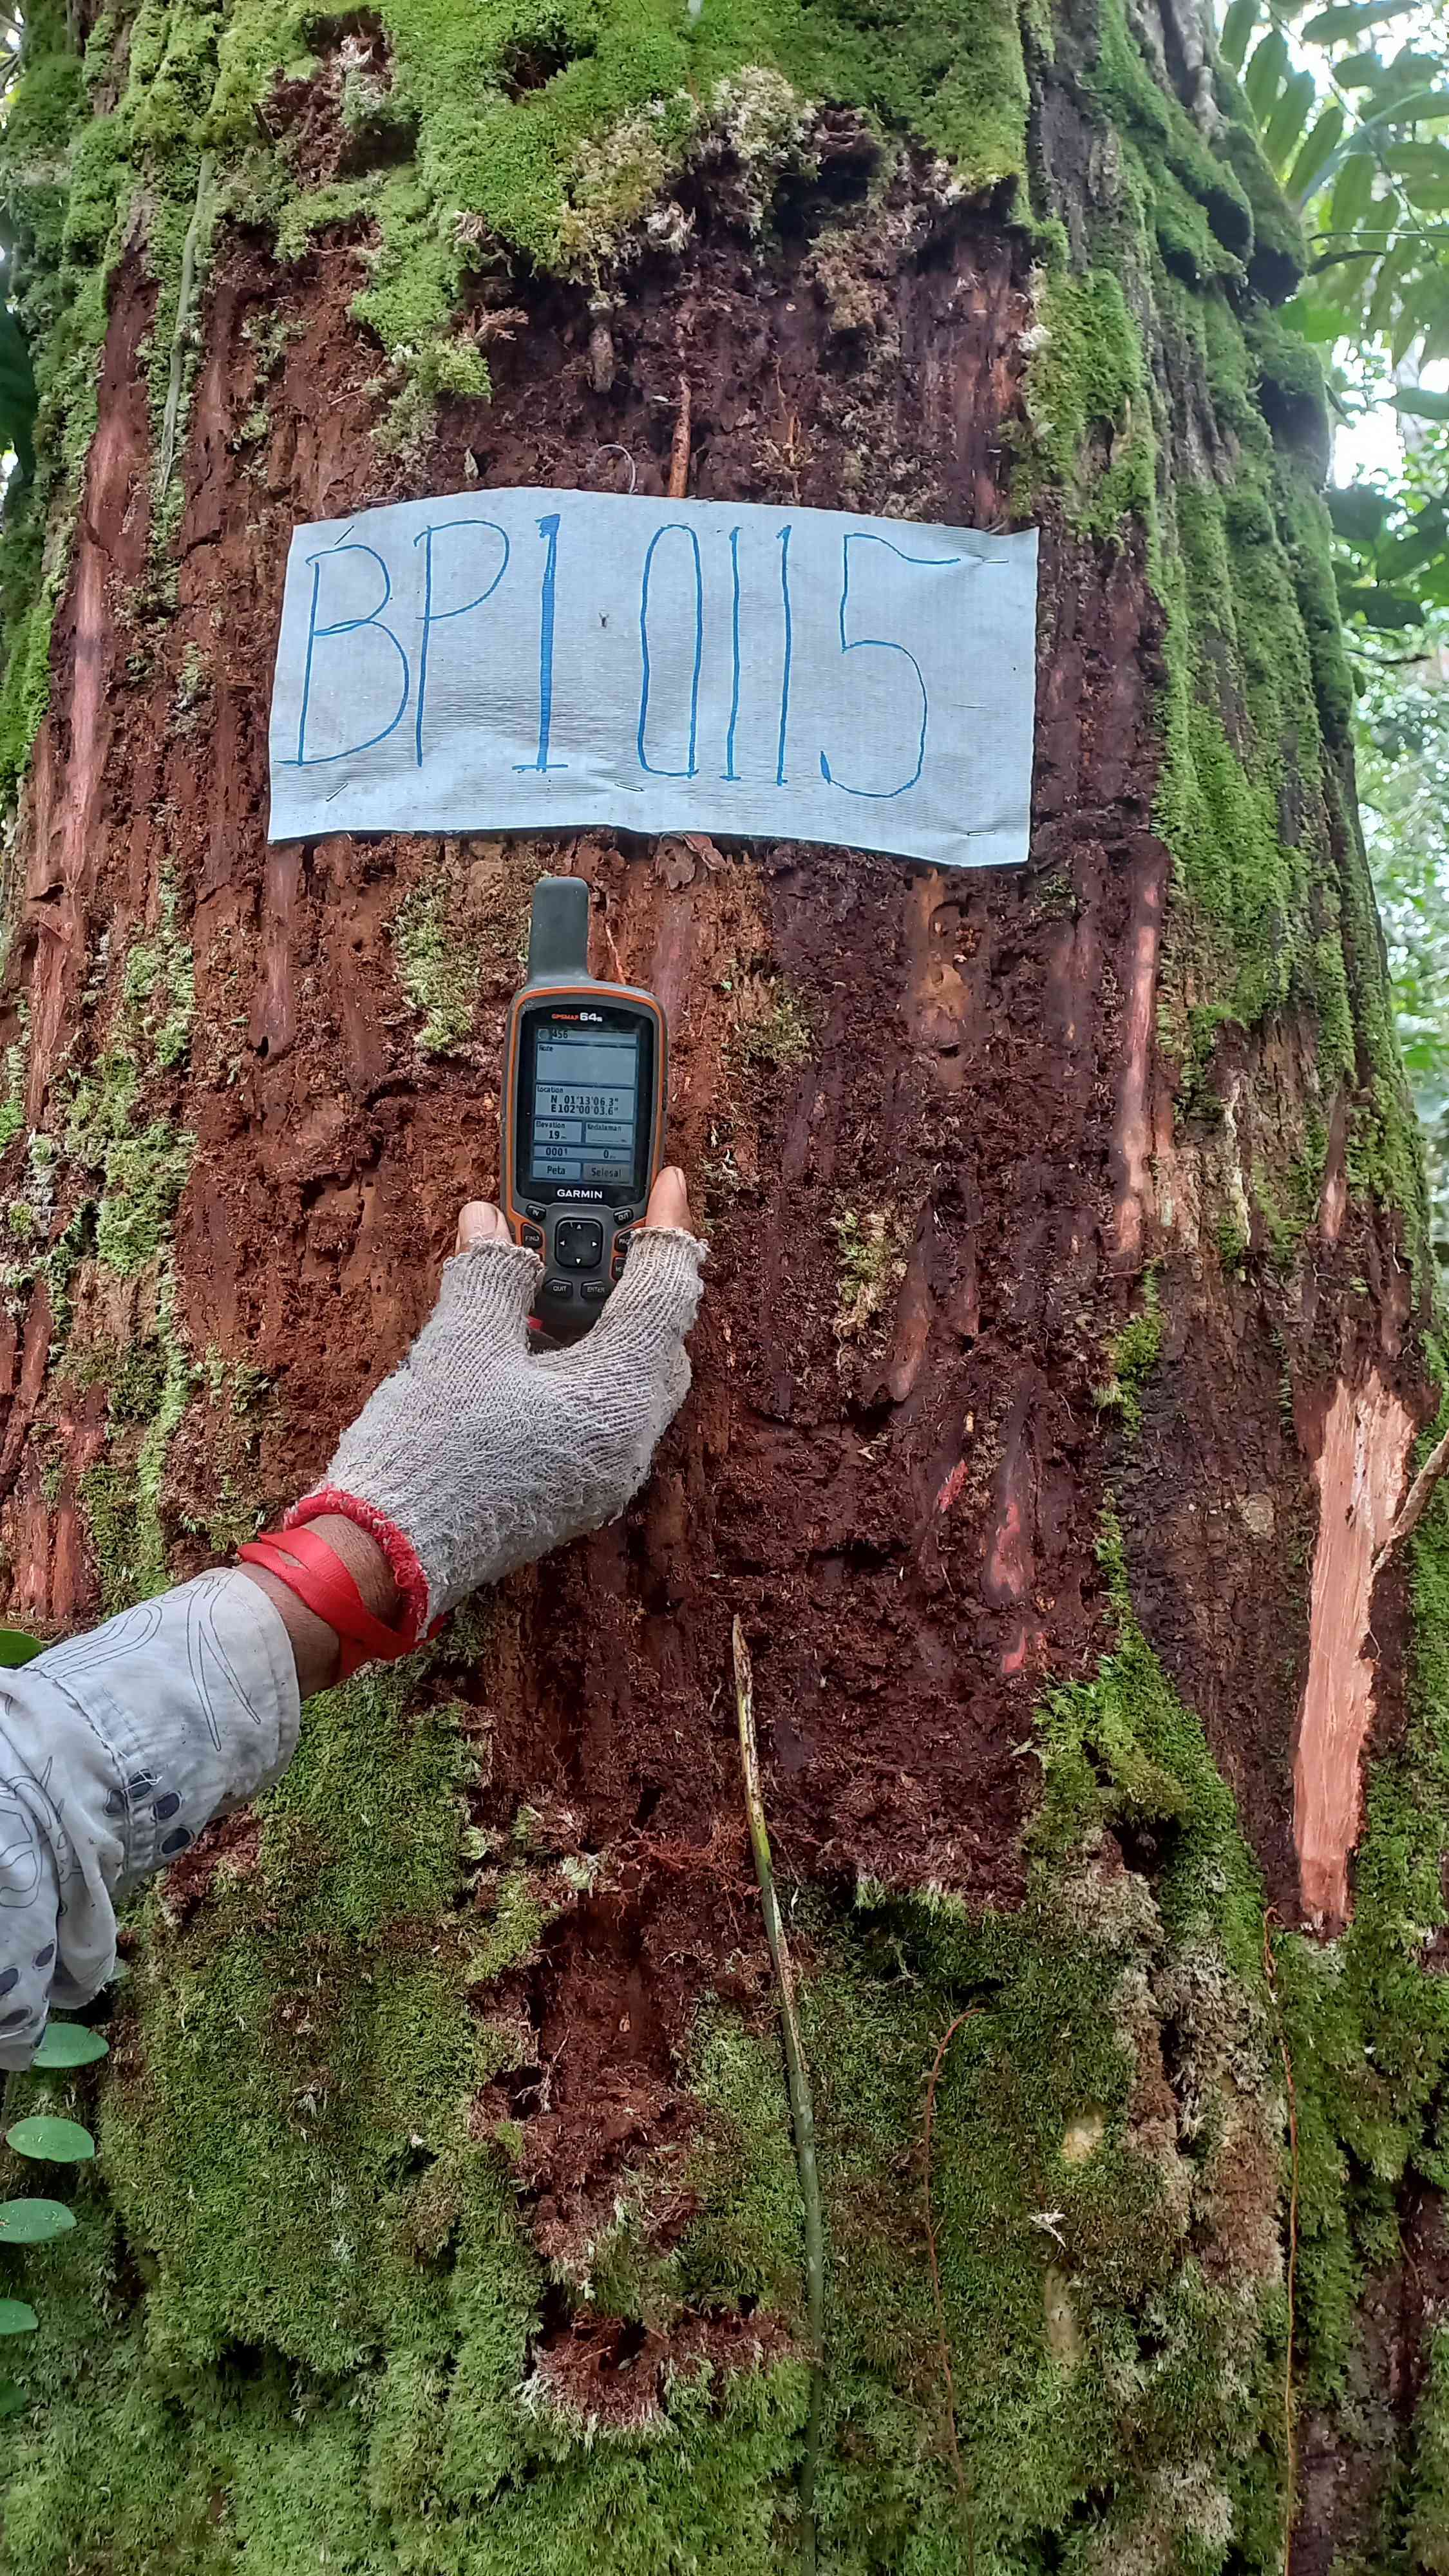 BPI 0115
GPSMAP 64s
456
Note
Location
N 01°13'06.3"
E102°00'03.6"
Elevation
Kedalaman
19
0001
0
Peta
Selesai
GARMIN
IN
OUT
FIND
QUIT
ENTER